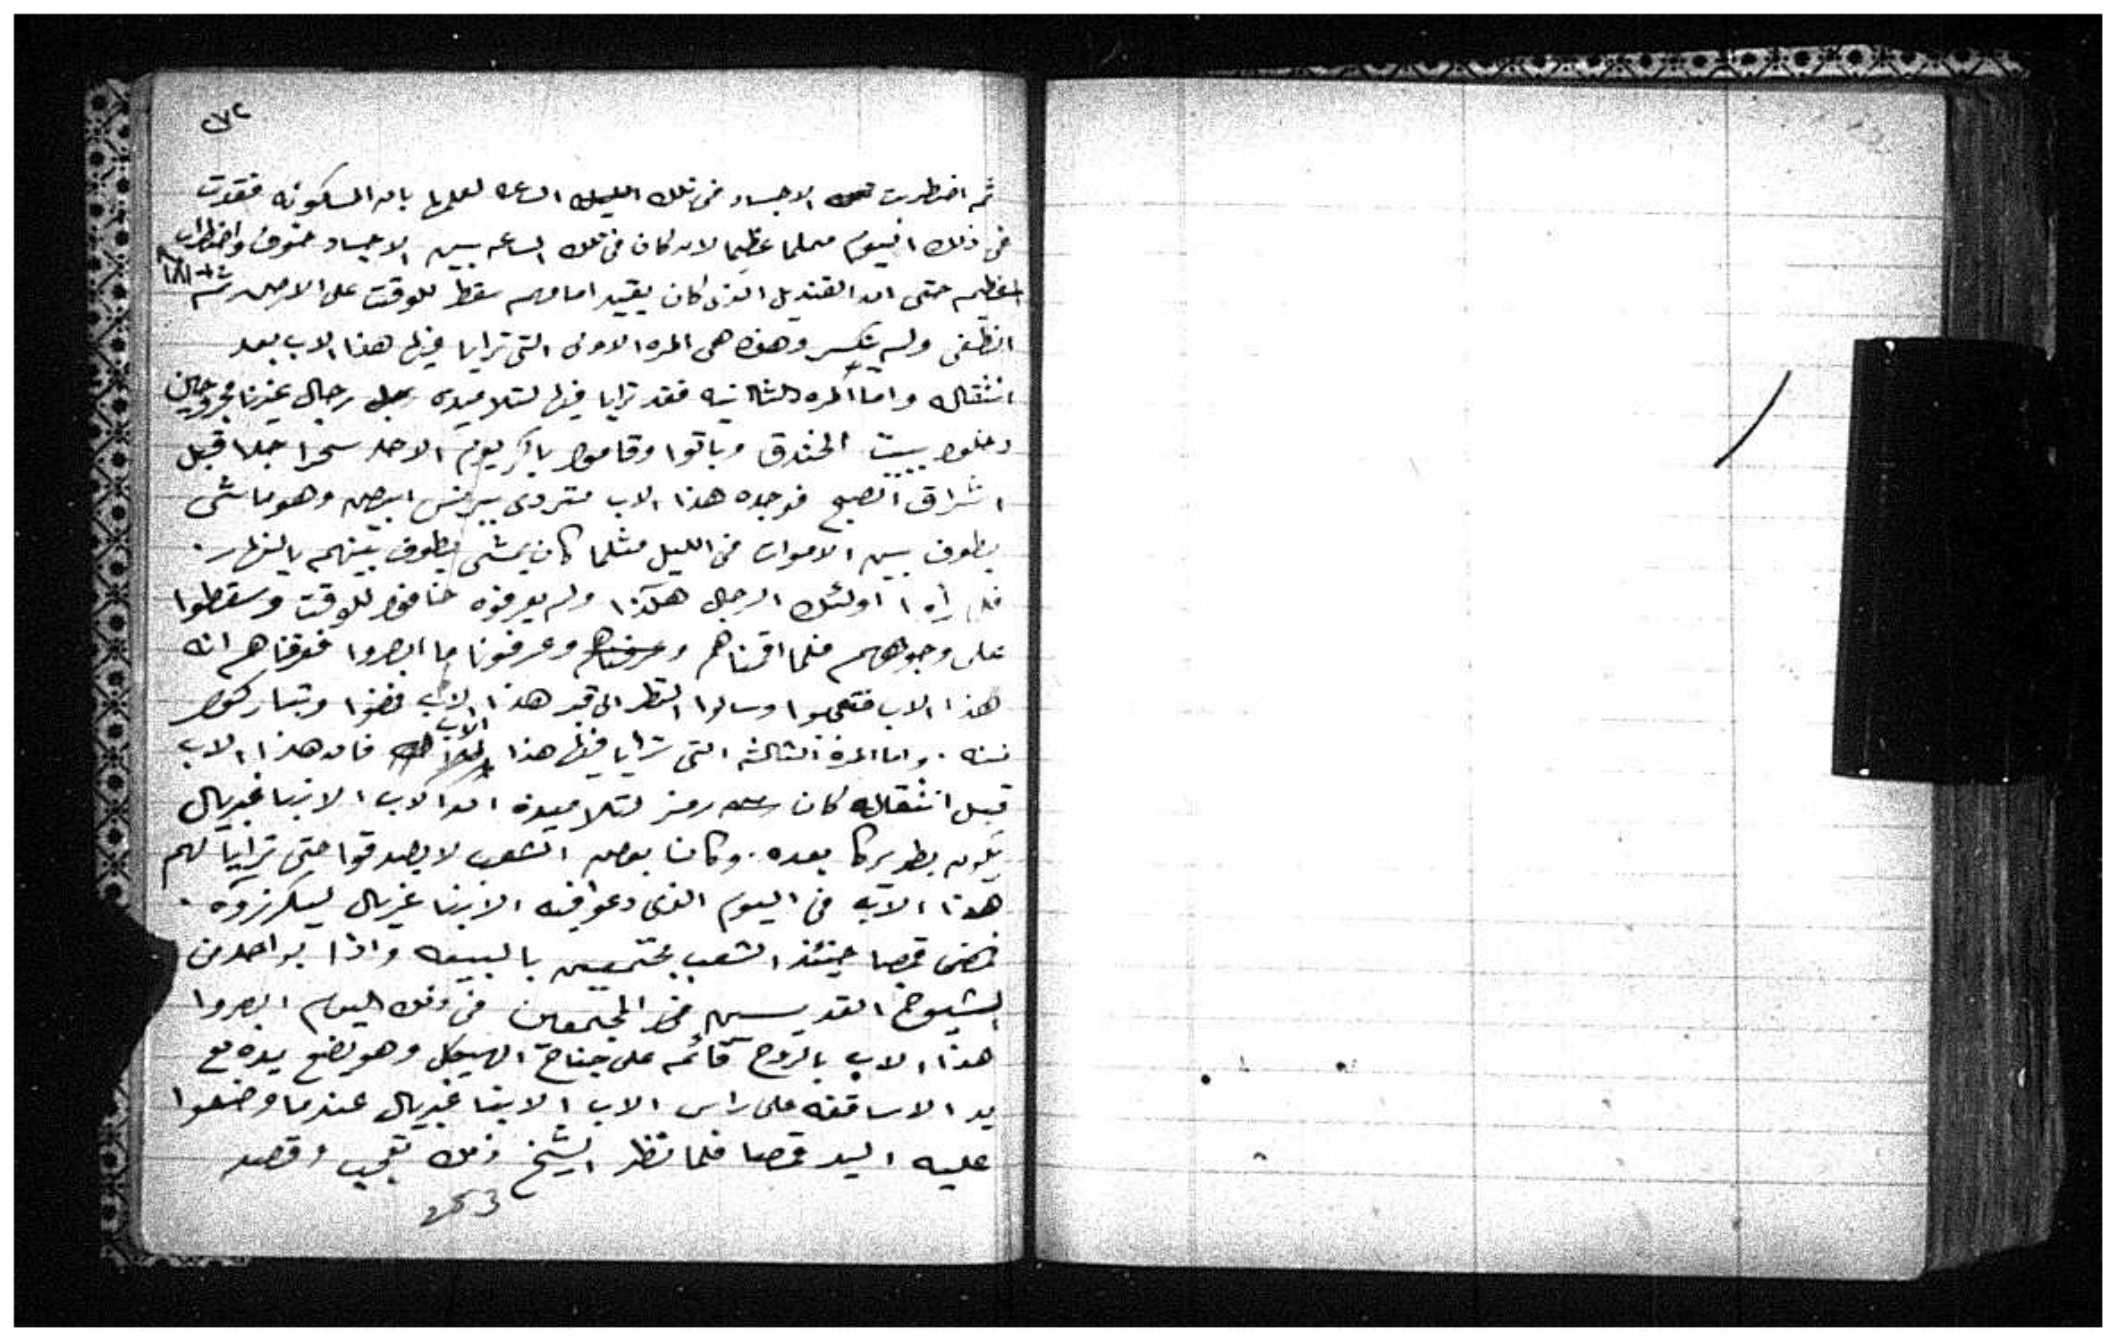 ٧٢
ثم اضطربت الاجساد فى تلك الساعه لعلمها بان المسكونه فقدت
فى ذلك اليوم معلما عظيما لانه كان فى تلك الساعه بين الاجساد خوف واضطراب
عظيم حتى ان القنديل الذى كان يقيد امامهم سقط للوقت على الارض
انطفى ولم ينكسر وهذه هى المره الاولى التى ترايا فيها هذا الاب بعد
انتقاله واما المره الثانيه فقد ترايا فيها لتلاميذى رجال
دخلوا بيت الخندق وباتوا وقاموا باكر يوم الاحد سحرا جدا قبل
اشراق الصبح فوجده هذا الاب متردى ببرنس ابيض وهو ماشى
يطوف بين الاموات فى الليل مثلما كان يمشى يطوف بينهم بالنهار.
فلما رأوا اولئك الرجال هكذا ولم يعرفوه خافوا للوقت وسقطوا
على وجوههم فلما اقمناهم وعرفونا ما ابصروا فعرفناهم انه
هذا الاب فتعجبوا وسالوا النظر الى قبر هذا الاب فمضوا وتباركوا
منه. واما المرة الثالثه التى ترايا فيها هذا الاب فان هذا الاب
قبل انتقاله كان رمز لتلاميذه ان الاب الانبا غبريال
يكون بطريركا بعده. وكان بعض الشعب لا يصدقوا حتى ترايا لهم
هذا الاب فى اليوم الذى دعوا فيه الانبا غبريال ليكرزوه.
حينئذ الشعب مجتمعين بالبيعه واذا بواحد من
الشيوخ القديسين المجتمعين فى ذلك اليوم ابصروا
هذا الاب بالروح قائم على جناح الهيكل وهو يضع يده مع
يد الاساقفه على راس الاب الانبا غبريال عندما وضعوا
عليه اليد فلما نظر الشيخ ذلك تعجب وقصد